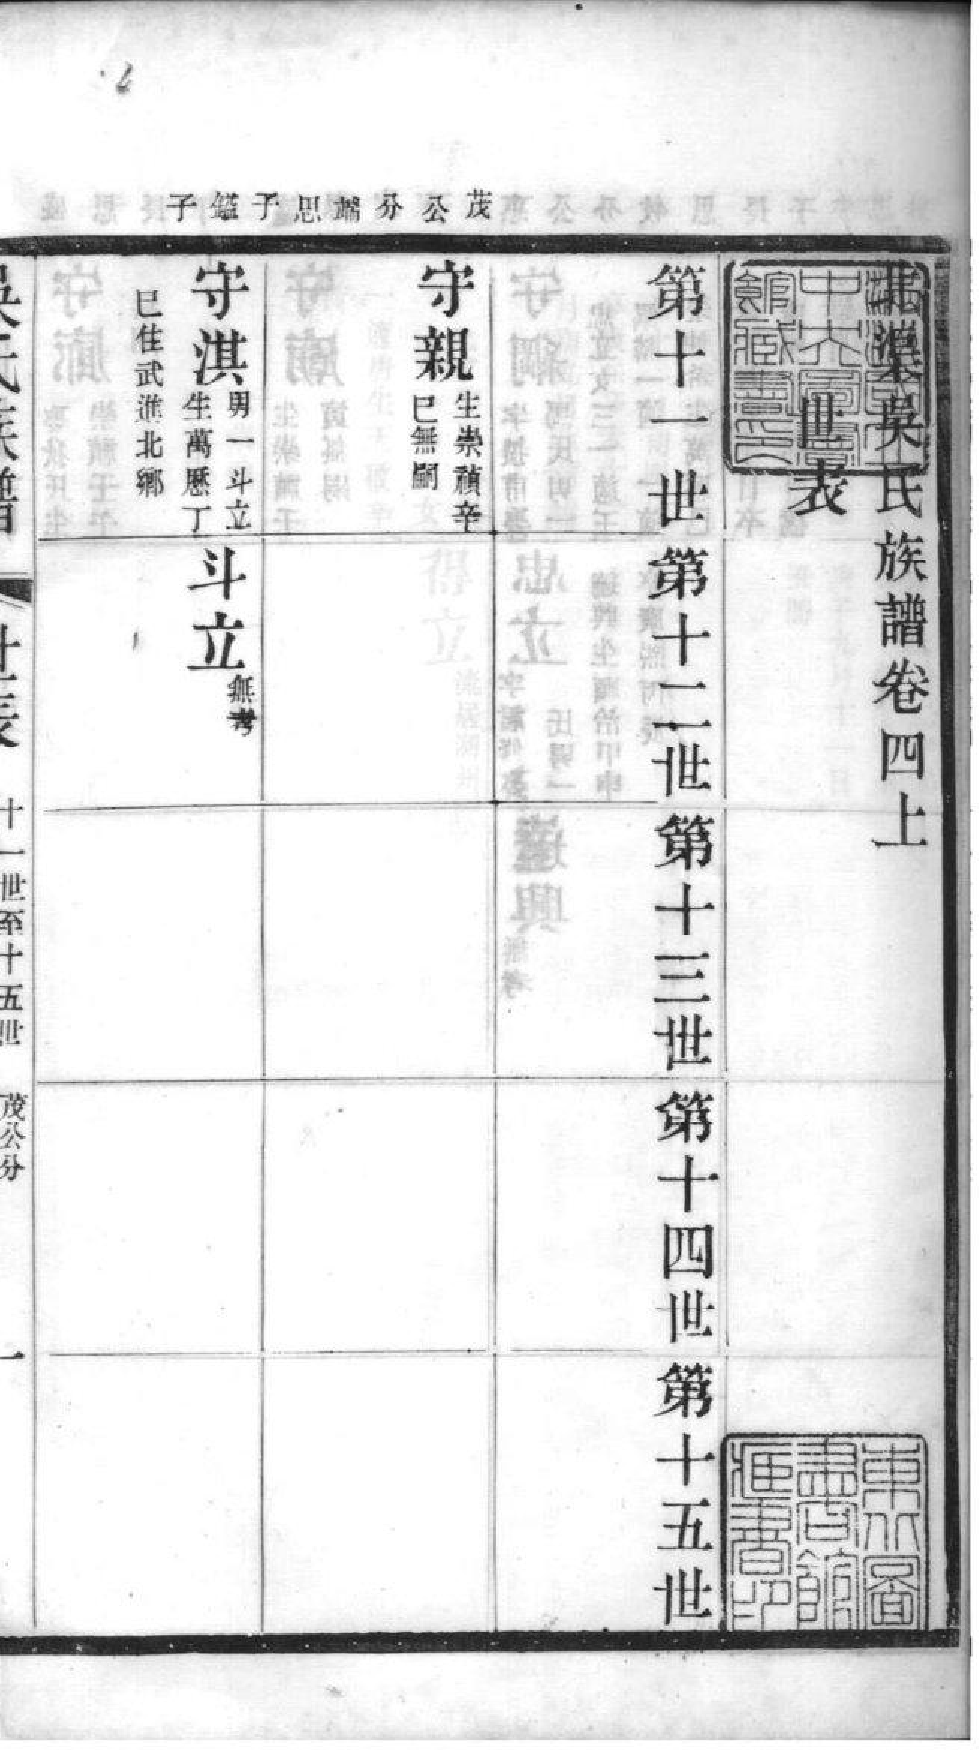 吳氏族譜卷四上
世表
第十一世
第十二世
第十三世
第十四世
第十五世
茂公分 思子鎰子
守親
生崇禎辛
巳無嗣
守淇
男一斗立
生萬歷丁
巳住武進北鄉
斗立
無考
吳氏族譜
世表
十一世至十五世
茂公分
一